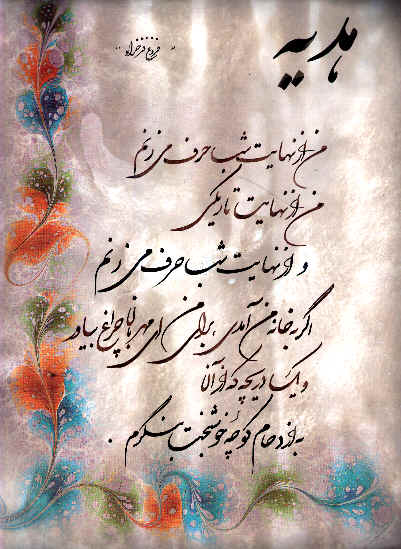 هدیه
" فروغ فرخزاد "
من از نهایت شب حرف می زنم
من از نهایت تاریکی
و از نهایت شب حرف می زنم
اگر به خانه من آمدی برای من ای مهربان چراغ بیاور
و یک دریچه که از آن
به ازدحام کوچهٔ خوشبخت بنگرم .